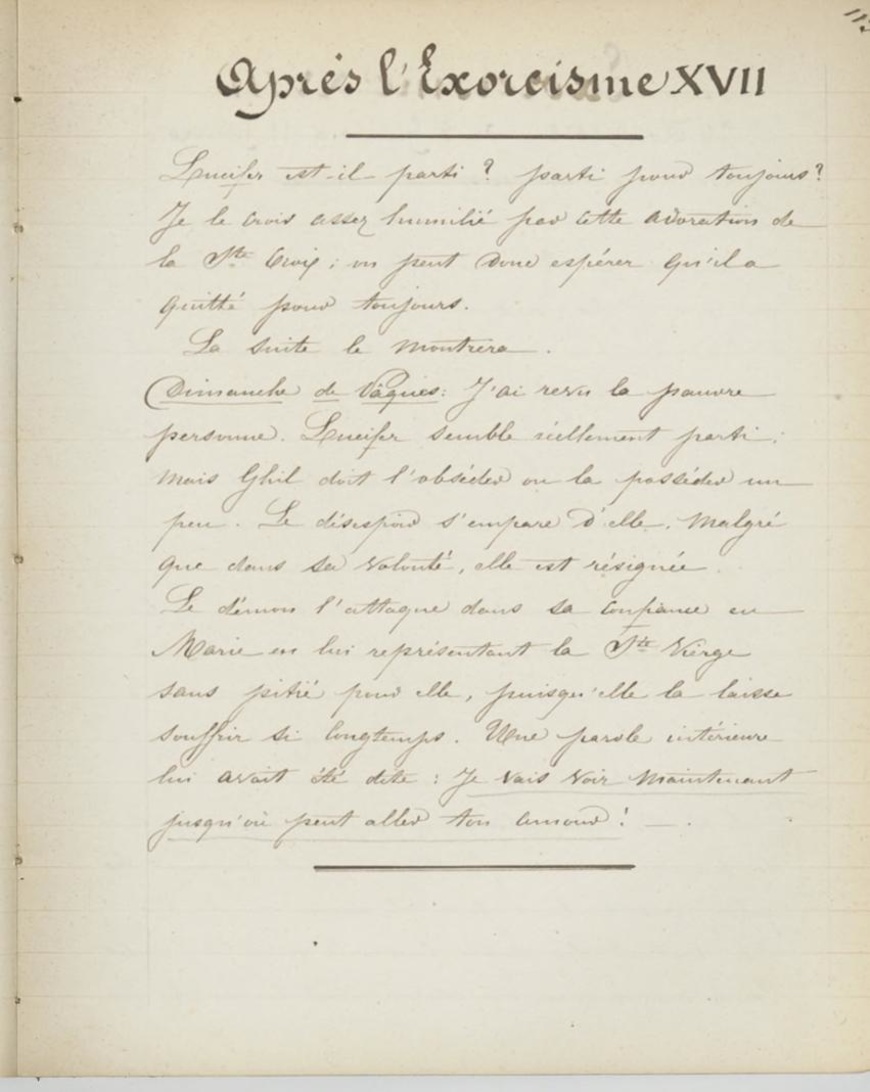 Après l'Exorcisme XVII
Lucifer est-il parti ? parti pour toujours ?
Je le crois assez humilié par cette adoration de
la Ste Croix ; on peut donc espérer qu'il a
quitté pour toujours.
La suite le montrera.
Dimanche de Pâques : J'ai revu la pauvre
personne. Lucifer semble réellement parti ;
mais Ghil doit l'obséder ou la posséder un
peu. Le désespoir s'empare d'elle. Malgré
que dans sa volonté, elle est résignée.
Le démon l'attaque dans sa confiance en
Marie en lui représentant la Ste Vierge
sans pitié pour elle, puisqu'elle la laisse
souffrir si longtemps. Une parole intérieure
lui avait été dite : Je vais voir maintenant
jusqu'où peut aller ton amour ! — .